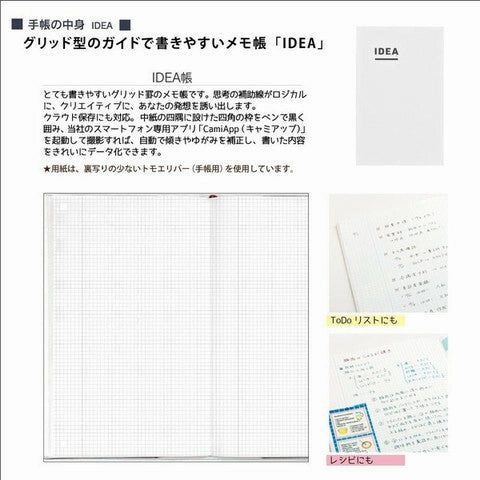 手帳の中身 IDEA
グリッド型のガイドで書きやすいメモ帳「IDEA」
IDEA
IDEA帳
とても書きやすいグリッド罫のメモ帳です。思考の補助線がロジカル
に、クリエイティブに、あなたの発想を誘い出します。
クラウド保存にも対応。中紙の四隅に設けた四角の枠をペンで黒く
囲み、当社のスマートフォン専用アプリ「CamiApp(キャミアップ)」
を起動して撮影すれば、自動で傾きやゆがみを補正し、書いた内容
をきれいにデータ化できます。
★用紙は、裏写りの少ないトモエリバー(手帳用)を使用しています。
ToDoリストにも
レシピにも